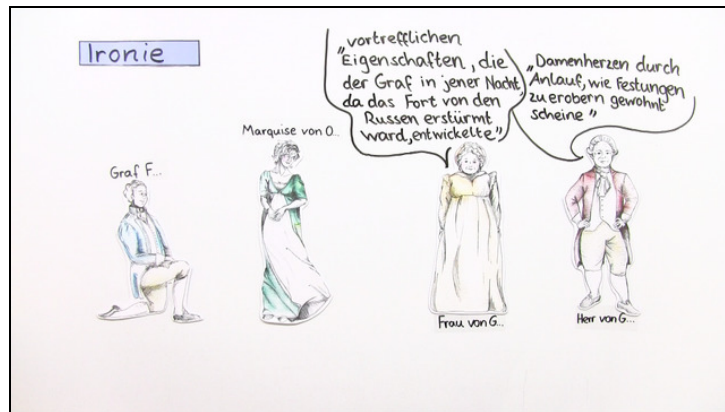 Ironie
„vortrefflichen
Eigenschaften, die
der Graf in jener Nacht,
da das Fort von den
Russen erstürmt
ward, entwickelte"
„Damenherzen durch
Anlauf, wie Festungen
zu erobern gewohnt
scheine"
Marquise von O...
Graf F...
Frau von G...
Herr von G...